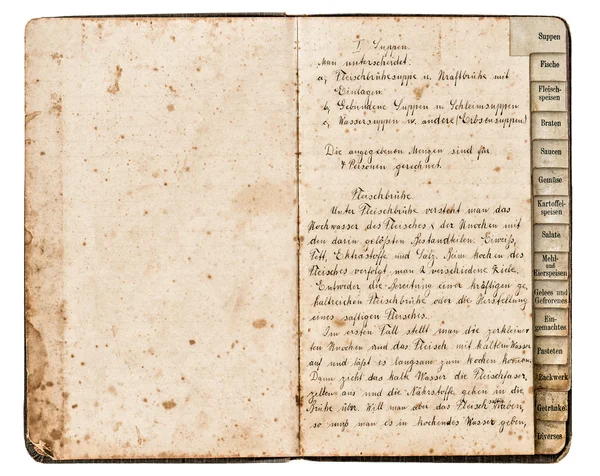 I. Suppen.
Man unterscheidet:
a, Fleischbrühsuppe u. Kraftbrühe mit
Einlagen.
b, Gebundene Suppen u Schleimsuppen
c, Wassersuppen u. andere (Erbsensuppen)
Die angegebenen Mengen sind für
4 Personen gerechnet.
Fleischbrühe.
Unter Fleischbrühe versteht man das
Kochwasser des Fleisches & der Knochen mit
den darin gelösten Bestandteilen: Eiweiß,
Fett, Extraktstoffe und Salz. Beim Kochen des
Fleisches verfolgt man 2 verschiedene Ziele.
Entweder die Bereitung einer kräftigen ge
haltreichen Fleischbrühe oder die Herstellung
eines saftigen Fleisches.
Im ersten Fall stellt man die zerkleiner
ten Knochen und das Fleisch mit kaltem Wasser
auf und läßt es langsam zum Kochen kommen.
Dann zieht das kalte Wasser die Fleischfaser
zellen aus und die Nährstoffe gehen in die
Brühe über. Will man aber das Fleisch haben,
so muß man es in kochendes Wasser geben,
Suppen
Fische
Fleisch-
speisen
Braten
Saucen
Gemüse
Kartoffel-
speisen
Salate
Mehl-
und
Eierspeisen
Gelees und
Gefrorenes
Ein-
gemachtes
Pasteten
Backwerk
Getränke
Diverses